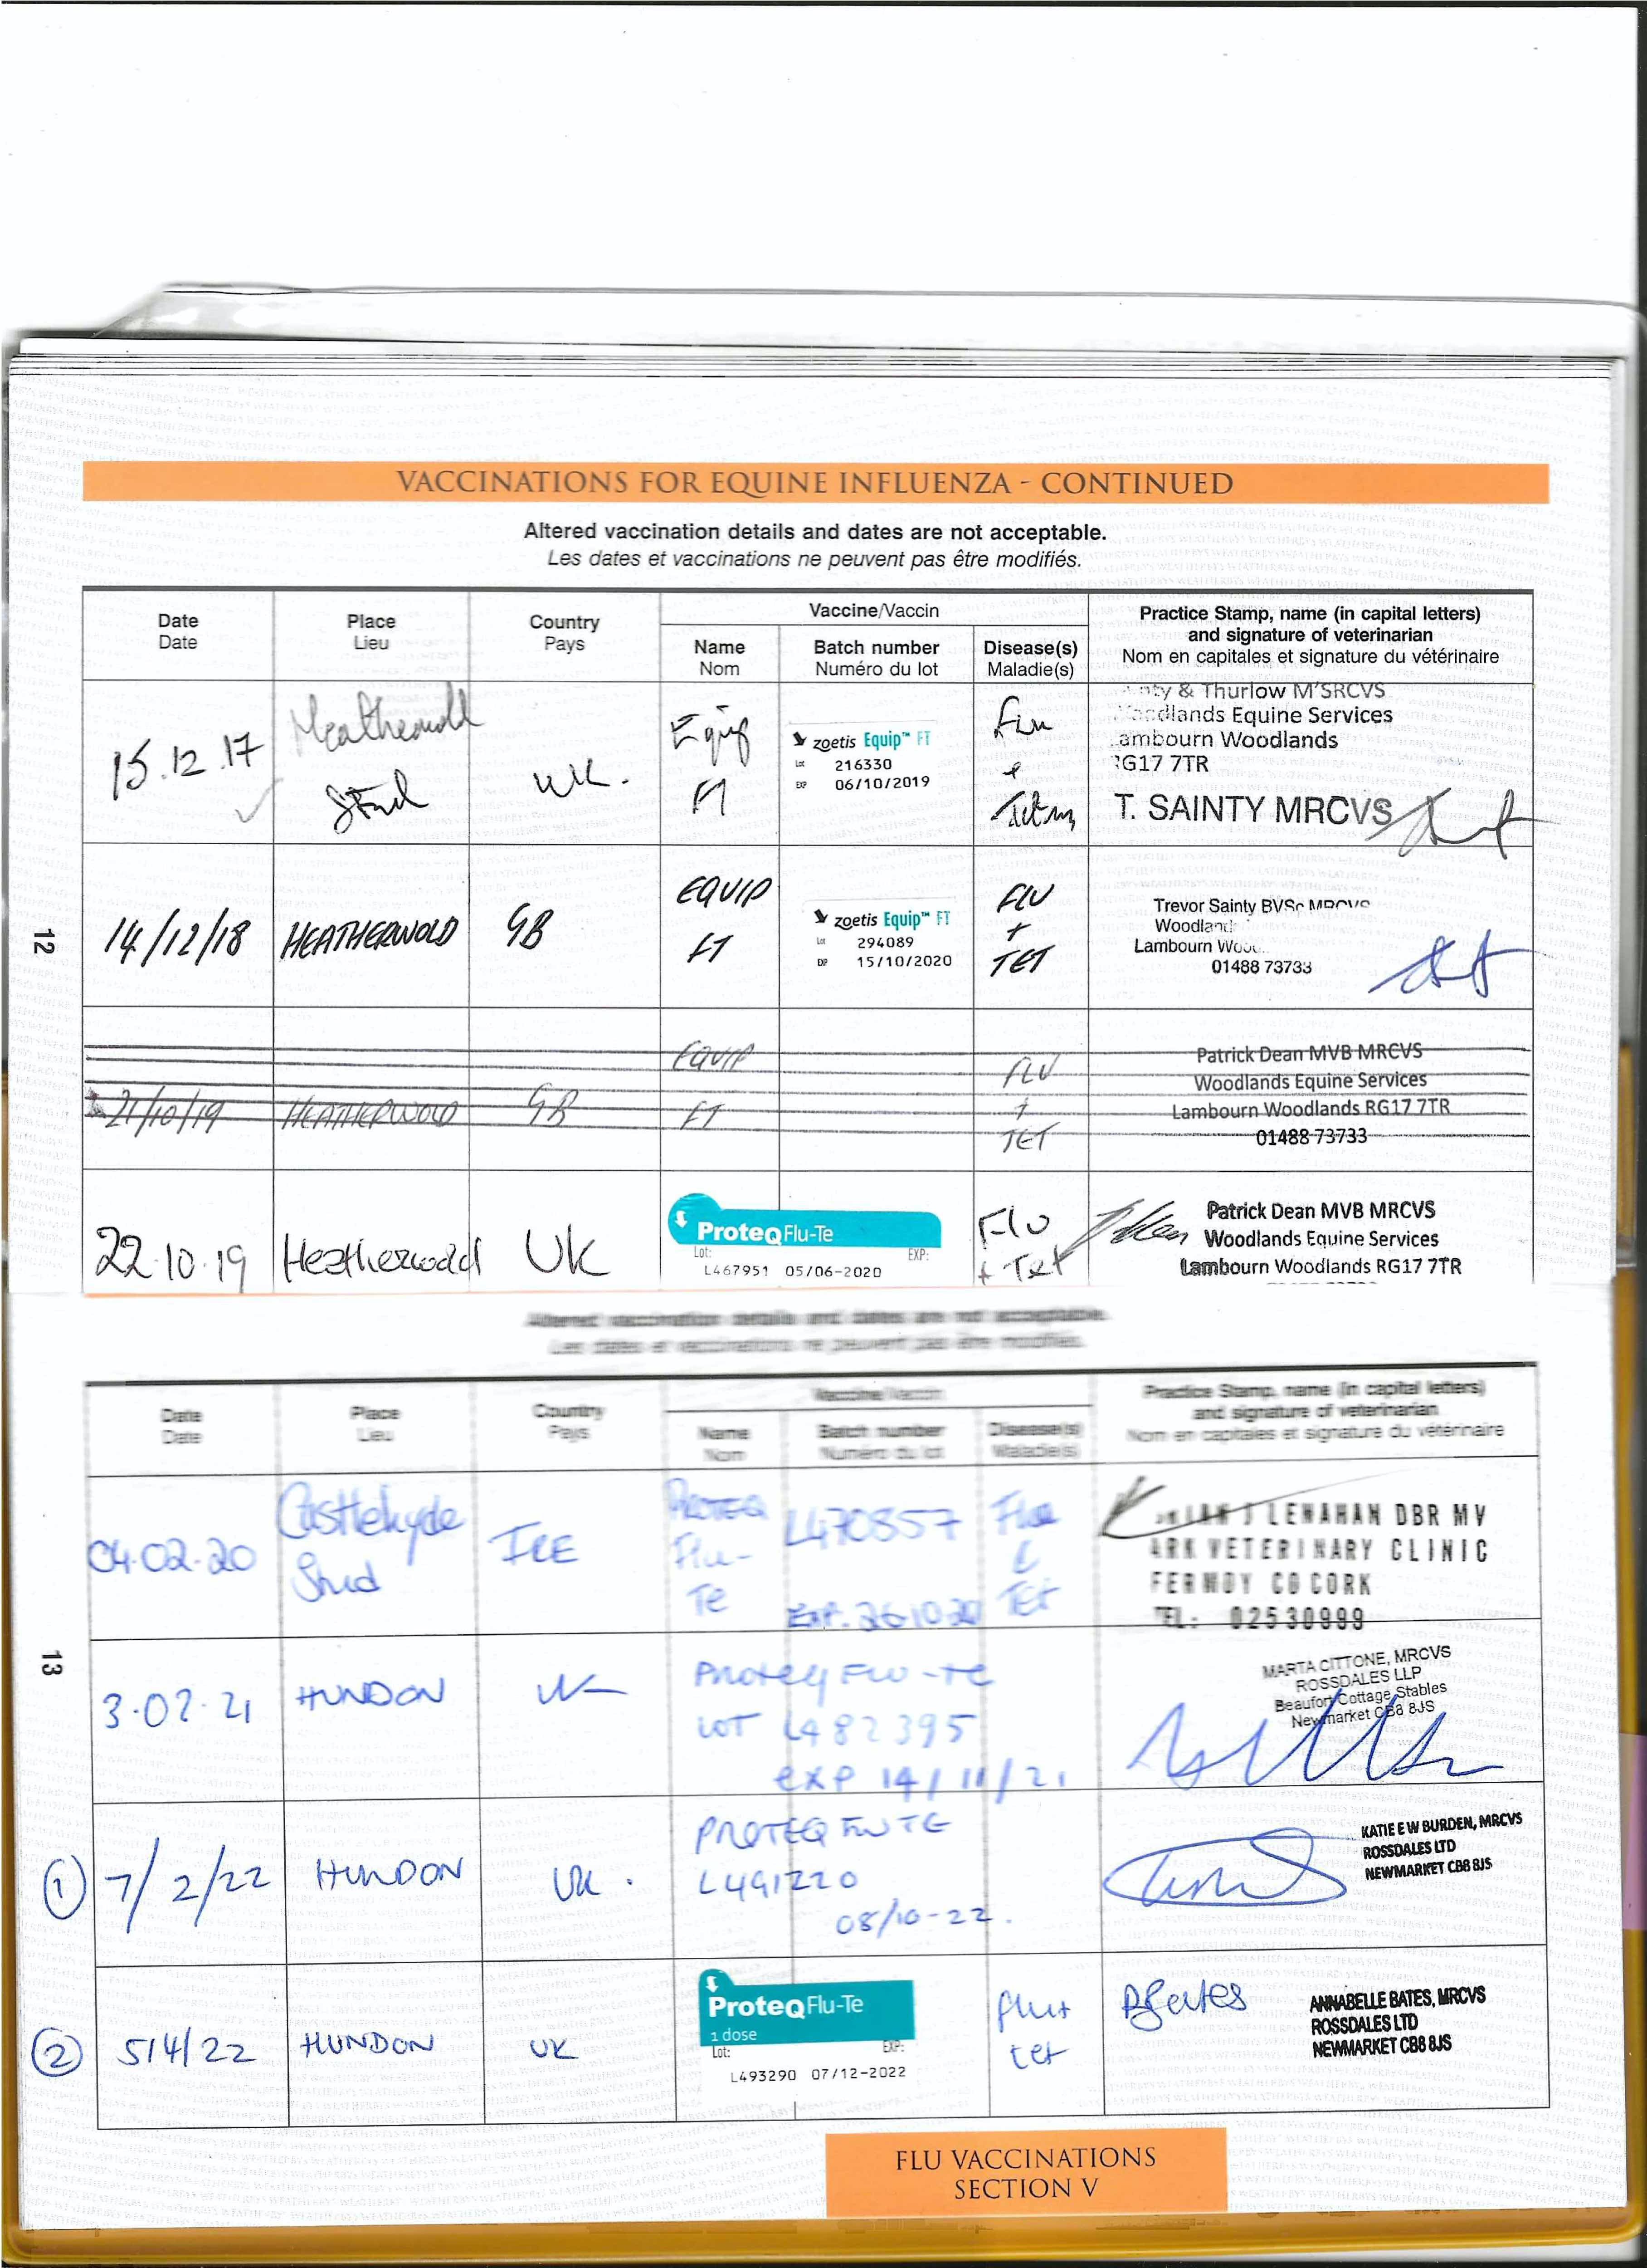 VACCINATIONS FOR EQUINE INFLUENZA - CONTINUED
Altered vaccination details and dates are not acceptable.
Les dates et vaccinations ne peuvent pas être modifiés.
Date
Date
Place
Lieu
Country
Pays
Vaccine/Vaccin
Name
Nom
Batch number
Numéro du lot
Disease(s)
Maladie(s)
Practice Stamp, name (in capital letters)
and signature of veterinarian
Nom en capitales et signature du vétérinaire
15.12.17
Stud
UK.
Equip
FT
zoetis Equip™ FT
Lot 216330
EXP 06/10/2019
Flu
& Thurlow M'SRCVS
Equine Services
Lambourn Woodlands
RG17 7TR
T. SAINTY MRCVS
12
14/12/18
HEATHERWOLD
GB
EQUIP
FT
zoetis Equip™ FT
Lot 294089
EXP 15/10/2020
FLU
+
TET
Trevor Sainty BVSc MRCVS
Lambourn
01488 73733
21/10/19
HEATHERWOLD
GB
EQUIP
FT
FLU
+
TET
Patrick Dean MVB MRCVS
Woodlands Equine Services
Lambourn Woodlands RG17 7TR
01488 73733
22.10.19
Heatherwold
UK
ProteqFlu-Te
Lot: EXP:
L467951 05/06-2020
Flu
+ Tet
Patrick Dean MVB MRCVS
Woodlands Equine Services
Lambourn Woodlands RG17 7TR
Altered vaccination details and dates are not acceptable.
Les dates et vaccinations ne peuvent pas être modifiés.
Date
Date
Place
Lieu
Country
Pays
Vaccine/Vaccin
Name
Nom
Batch number
Numéro du lot
Disease(s)
Maladie(s)
Practice Stamp, name (in capital letters)
and signature of veterinarian
Nom en capitales et signature du vétérinaire
04.02.20
Castlehyde
Stud
IRE
PROTEQ
Flu-
Te
L470857
Exp. 26.10.20
Flu
&
Tet
J LENAHAN DBR MV
ARK VETERINARY CLINIC
FERMOY CO CORK
TEL: 02530999
13
3.02.21
HUNDON
UK
Proteq FLU-TE
LOT L482395
exp 14/11/21
MARTA CITTONE, MRCVS
ROSSDALES LLP
Beaufort Cottage Stables
Newmarket CB8 8JS
1 7/2/22
HUNDON
UK.
PROTEQ FLU TE
L491220
08/10-22.
KATIE E W BURDEN, MRCVS
ROSSDALES LTD
NEWMARKET CB8 8JS
2 5/4/22
HUNDON
UK
ProteqFlu-Te
1 dose
Lot: EXP:
L493290 07/12-2022
flu+
tet
ANNABELLE BATES, MRCVS
ROSSDALES LTD
NEWMARKET CB8 8JS
FLU VACCINATIONS
SECTION V